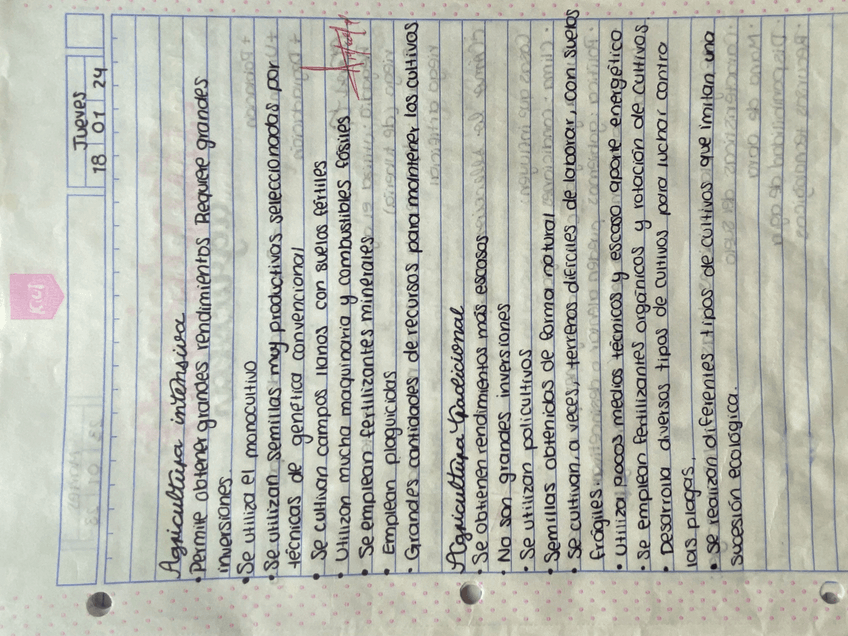 Jueves
18 01 24
Kiut
Agricultura intensiva
• Permite obtener grandes rendimientos Requiere grandes
inversiones.
• Se utiliza el monocultivo
• Se utilizan semillas muy productivas seleccionadas por
técnicas de genética convencional
• Se cultivan campos llanos con suelos fértiles
• Utilizan mucha maquinaria y combustibles fósiles
• Se emplean fertilizantes minerales
• Emplean plaguicidas
• Grandes cantidades de recursos para mantener los cultivos
Agricultura tradicional
• Se obtienen rendimientos más escasos
• No son grandes inversiones
• Se utilizan policultivos
• Semillas obtenidas de forma natural
• Se cultivan, a veces, terrenos difíciles de laborar, con suelos
frágiles.
• Utiliza pocos medios técnicos y escaso aporte energético
• Se emplean fertilizantes orgánicos y rotación de cultivos.
• Desarrolla diversos tipos de cultivos para luchar contra
las plagas.
• Se realizan diferentes tipos de cultivos que imitan una
sucesión ecológica.